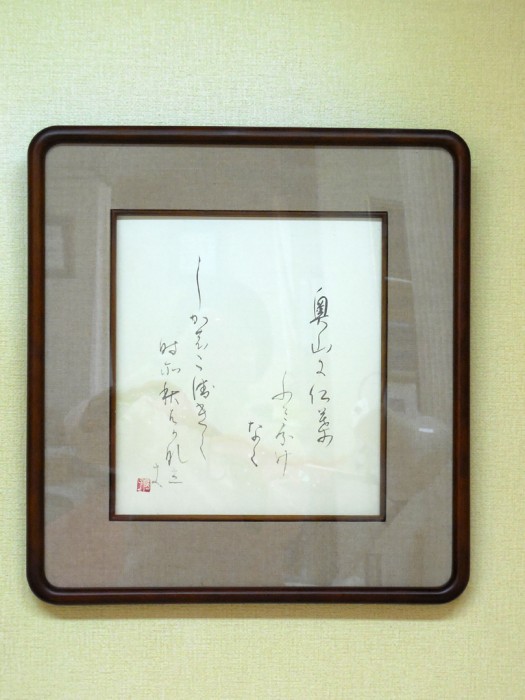 奥山に紅葉
ふみわけ
なく
しかの こゑきく
時そ秋はかなし
き